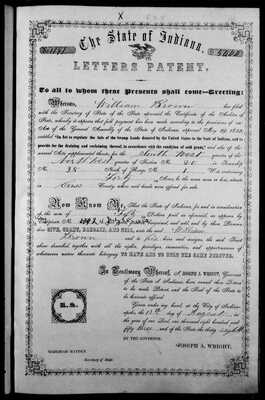 X
The State of Indiana.
LETTERS PATENT.
To all to whom these Presents shall come—Greeting:
Whereas, William Brown has filed
with the Secretary of State of the State aforesaid the Certificate of the Auditor of
State, whereby it appears that full payment has been made according to the provisions of an
Act of the General Assembly of the State of Indiana, approved
entitled "An Act to regulate the sale of the Swamp Lands donated by the United States to the State of Indiana, and to
provide for the draining and reclaiming thereof, in accordance with the condition of said grant," and also of the
several Acts supplemental thereto, for the South West quarter of the
North West quarter of Section No. 20 in Township
No. 28 North of Range No. 1
Forty Acres, to the same more or less, situate in
Cass County, where said lands were offered for sale.
Now Know Ye, That the State of Indiana, for and in consideration
of the sum of Dollars paid as aforesaid, as appears by
GIVE, GRANT, BARGAIN, AND SELL, unto the said William
Brown and to his heirs and assigns, the said Tract
above described, together with all the rights, privileges, immunities, and appurtenances of
whatsoever nature thereunto belonging TO HAVE AND TO HOLD THE SAME FOREVER.
In Testimony Whereof, I, JOSEPH A. WRIGHT, Governor
of the State of Indiana, have caused these Letters
to be made Patent, and the Seal of the State to
be hereunto affixed.
Given under my hand, at the City of Indianapolis,
the day of August in
the year of our Lord one thousand eight hundred and
fifty three, and of the State the thirty
BY THE GOVERNOR.
JOSEPH A. WRIGHT.
Secretary of State.